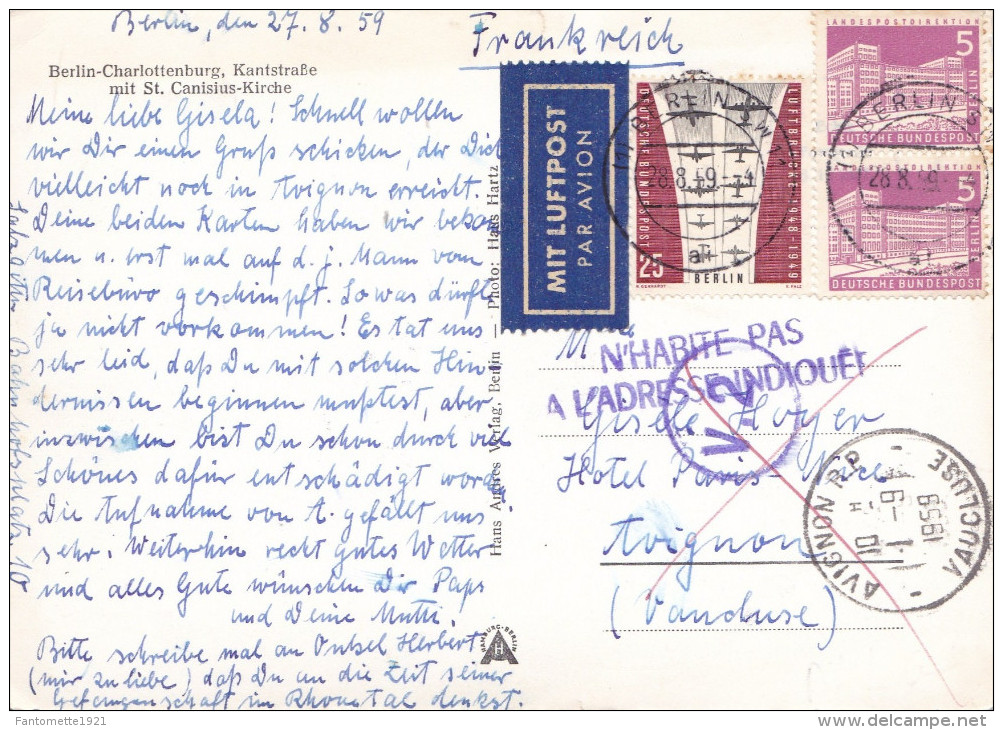 Berlin, den 27. 8. 59
Berlin-Charlottenburg, Kantstraße
mit St. Canisius-Kirche
Meine liebe Gisela! Schnell wollen
wir Dir einen Gruß schicken, der Dich
vielleicht noch in Avignon erreicht.
Deine beiden Karten haben wir bekom
men u. erst mal auf d. j. Mann vom
Reisebüro geschimpft. Sowas dürfte
ja nicht vorkommen! Es tat uns
sehr leid, daß Du mit solchen Hin
dernissen beginnen mußtest, aber
inzwischen bist Du schon durch viel
Schönes dafür entschädigt word.
Die Aufnahme von A. gefällt uns
sehr. Weiterhin recht gutes Wetter
und alles Gute wünschen Dir Paps
und Deine Mutti.
Bitte schreibe mal an Onkel Herbert
(mir zu liebe) daß Du an die Zeit seiner
Gefangenschaft im Rhonetal denkst.
Bahnhofsplatz 10
Hans Andres Verlag, Berlin — Photo: Hans Hartz
HAMBURG-BERLIN
H
Frankreich
MIT LUFTPOST
PAR AVION
DEUTSCHE BUNDESPOST
LUFTBRÜCKE 1948-1949
25
BERLIN
LANDESPOSTDIREKTION
5
BERLIN
DEUTSCHE BUNDESPOST
LANDESPOSTDIREKTION
5
BERLIN
DEUTSCHE BUNDESPOST
BERLIN SW 11
28.8.59
a
BERLIN
28.8.59
N'HABITE PAS
A L'ADRESSE INDIQUÉE
V 2
Mlle
Gisele Hoyer
Hotel Paris-Nice
Avignon
(Vaucluse)
AVIGNON R.P.
VAUCLUSE
10 H
1-9
1959
Fantomette1921